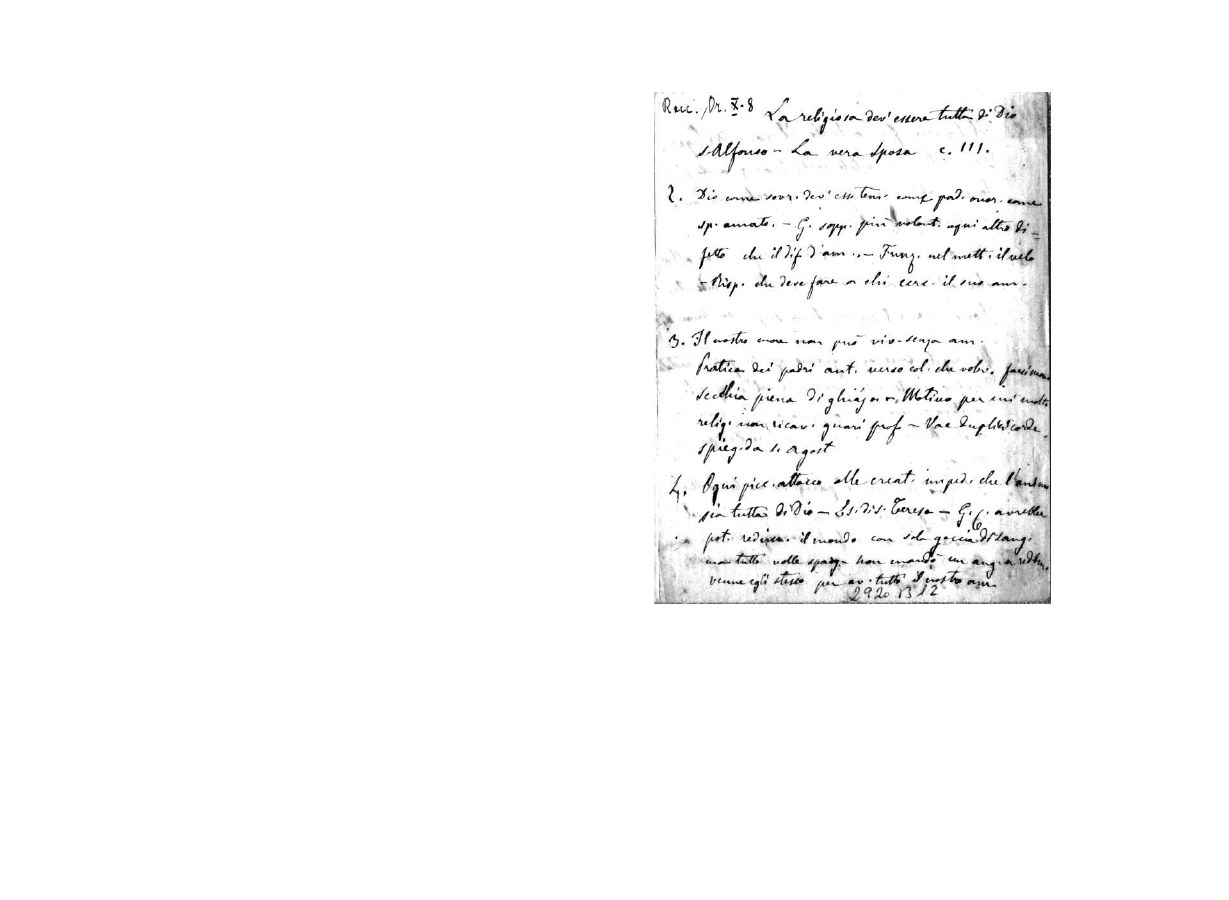 Racc. Or. X. 8 La religiosa dev' essere tutta di Dio
s. Alfonso – La vera sposa c. III.
2. Dio come sovr. dev' esse tem. come pad. onor. come
sp. amato. – G. sopp. più volent. ogni altro di-
fetto che il dif d'am. – Funz. nel mett. il velo
– Risp. che deve fare a chi cerc. il suo am.
3. Il nostro cuore non può viv. senza am.
Pratica dei padri ant. verso col. che vol.
secchia piena di ghiaja Motivo per cui molte
relig. non ricav. quasi prof – Vae duplici corde.
spieg. da s. Agost
4. Ogni picc. attacco alle creat. imped. che l'anima
sia tutta di Dio – Es. di S. Teresa – G. C. avrebbe
pot. redim. il mondo con sola goccia di sang.
ma tutto volle sparg. non mandò un ang. a
venne egli stesso per av. tutto il nostro am.
2920 B 12